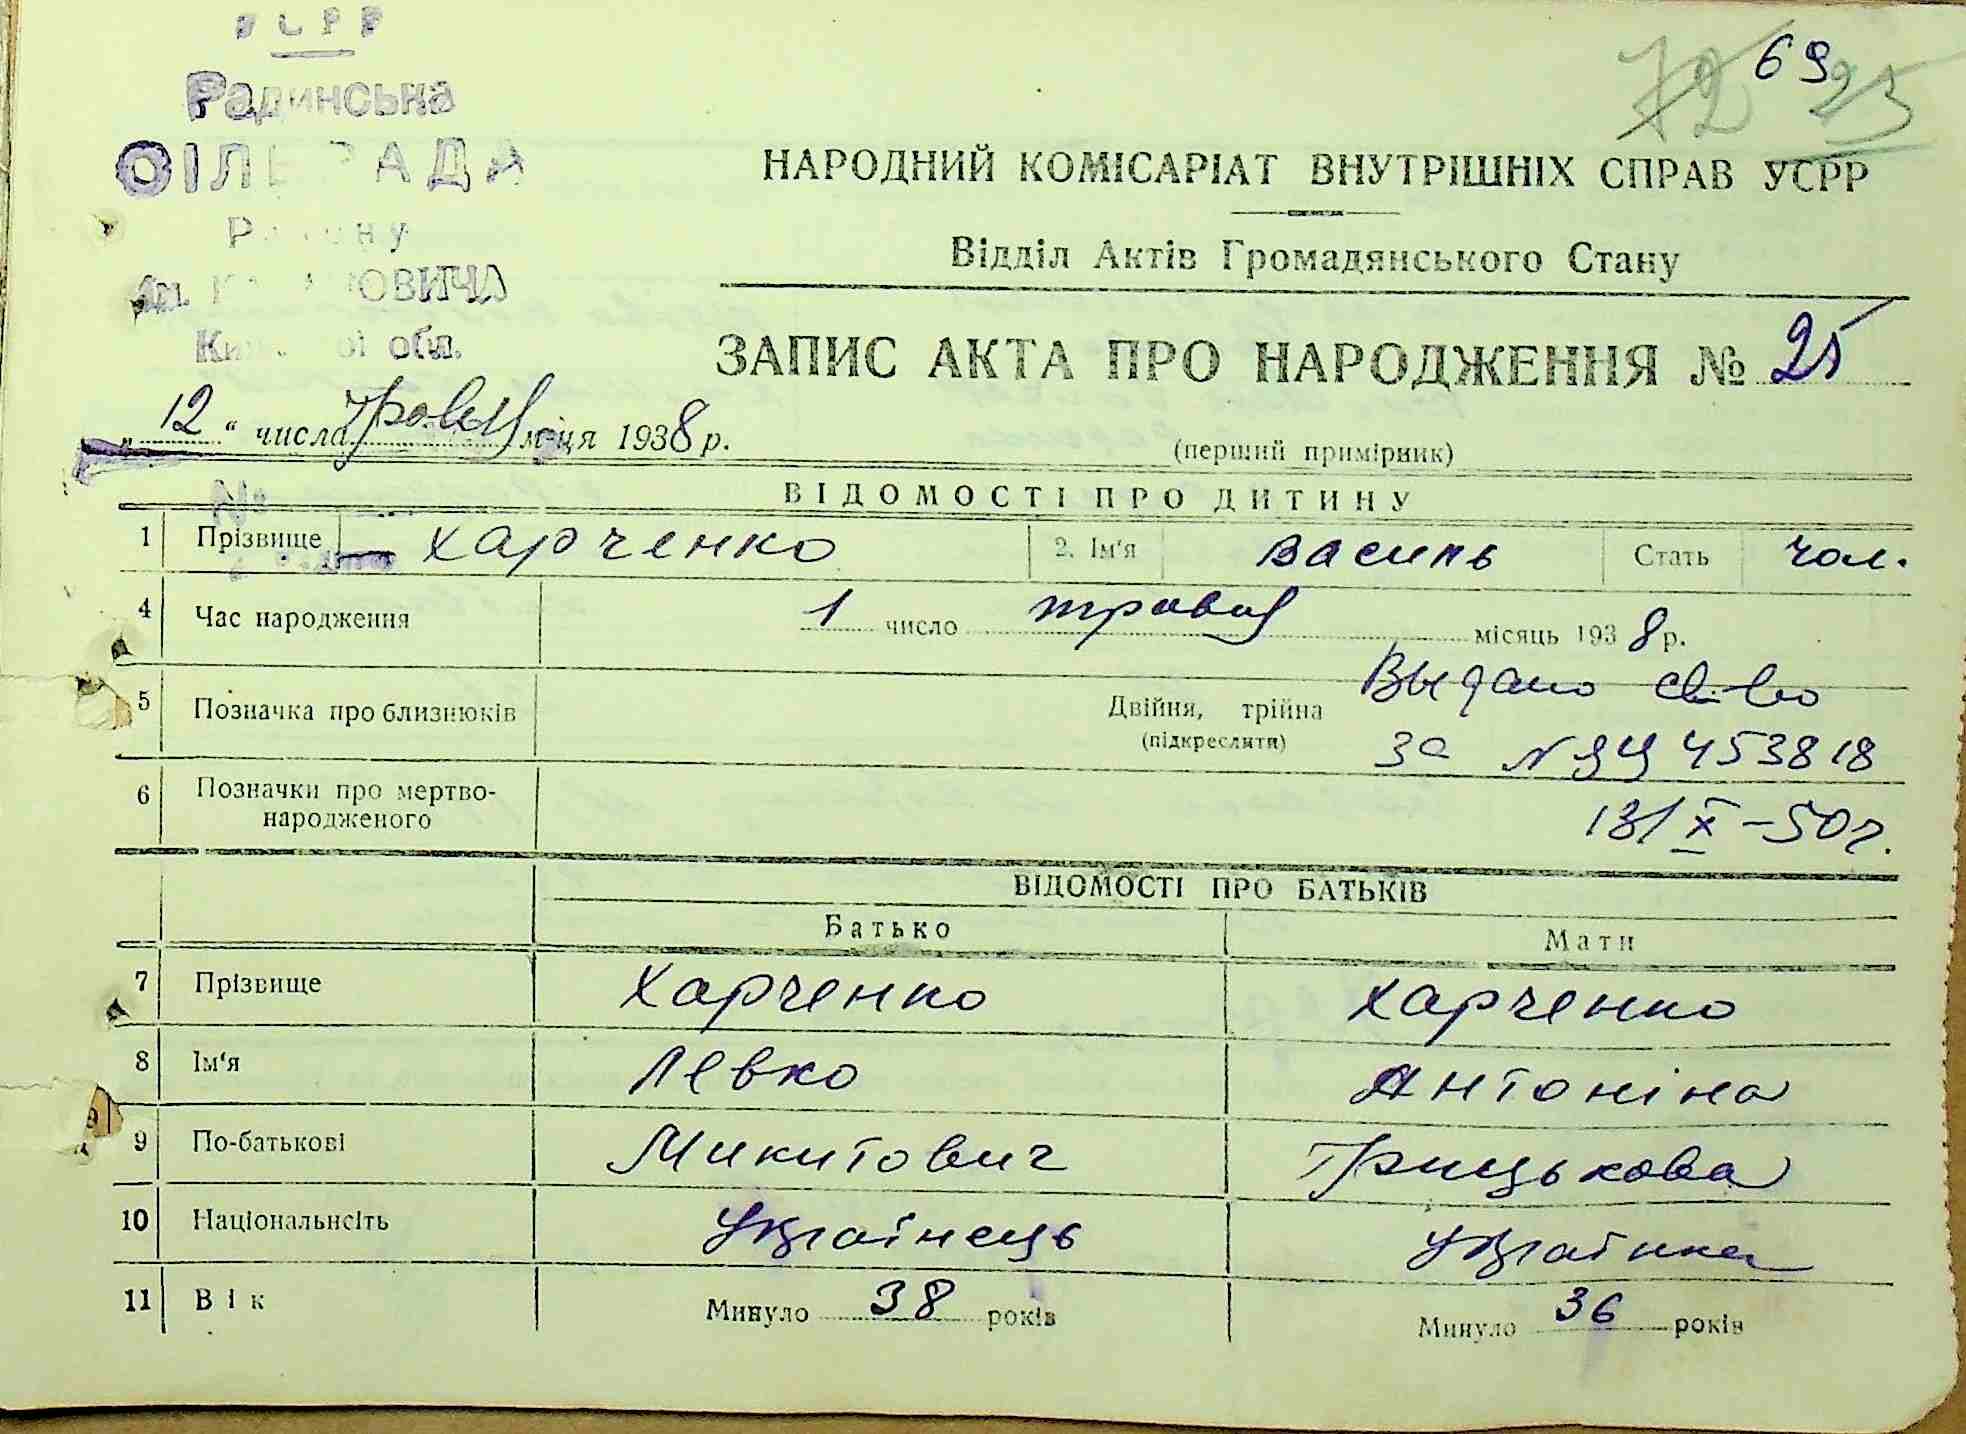 УСРР
Радинська
СІЛЬРАДА
Району
ім. КАГАНОВИЧА
Київської обл.
72 69 25
НАРОДНИЙ КОМІСАРІАТ ВНУТРІШНІХ СПРАВ УСРР
Відділ Актів Громадянського Стану
ЗАПИС АКТА ПРО НАРОДЖЕННЯ № 25
„12“ числа травня м-ця 1938 р.
(перший примірник)
№
ВІДОМОСТІ ПРО ДИТИНУ
1 Прізвище Харченко 2. Ім'я Василь Стать чол.
4 Час народження 1 число травня місяць 1938 р.
5 Позначка про близнюків Двійня, трійна
(підкреслити)
Выдано св-во
за № ЯЧ 453818
6 Позначки про мертво-
народженого
13/X-50 г.
ВІДОМОСТІ ПРО БАТЬКІВ
Батько Мати
7 Прізвище Харченко Харченко
8 Ім'я Левко Антоніна
9 По-батькові Микитович Грицькова
10 Національнсіть Українець Українка
11 Вік Минуло 38 років Минуло 36 років